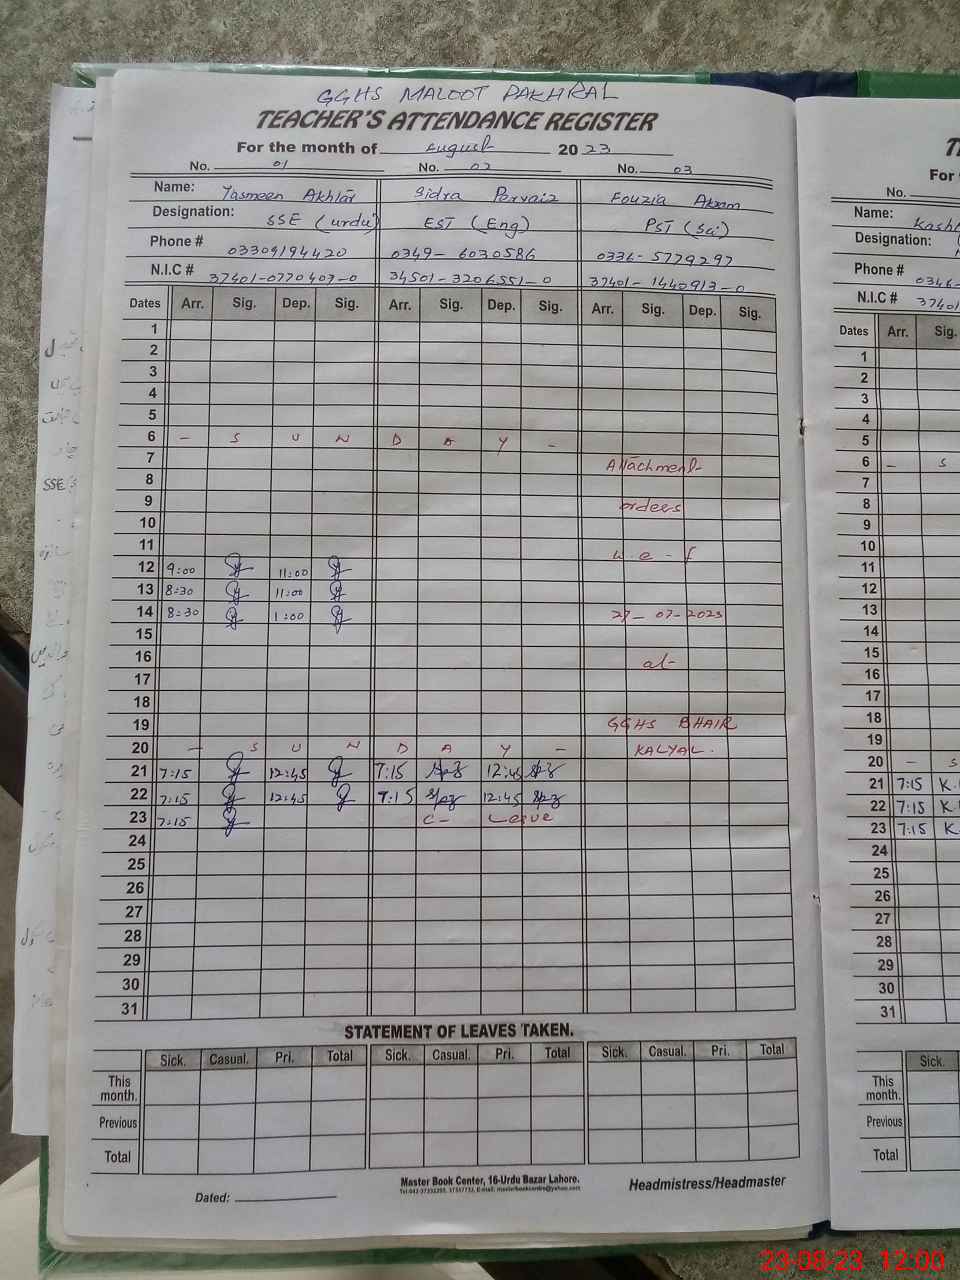 GGHS MALOOT PAKHRAL
TEACHER'S ATTENDANCE REGISTER
For the month of August 2023
No. 01 No. 02 No. 03
Name: Yasmeen Akhtar Sidra Pervaiz Fouzia Akram
Designation: SSE (urdu) EST (Eng) PST (Sci)
Phone # 03309194420 0349-6030586 0336-5779297
N.I.C # 37401-0770407-0 34501-3206551-0 37401-1440913-0
Dates Arr. Sig. Dep. Sig. Arr. Sig. Dep. Sig. Arr. Sig. Dep. Sig.
1
2
3
4
5
6 - S U N D A Y -
7 Attachment
8
9 orders
10
11 w.e-f
12 9:00 11:00
13 8:30 11:00
14 8:30 1:00 27-07-2023
15
16 at
17
18
19 GGHS BHAIR
20 - S U N D A Y - KALYAL.
21 7:15 12:45 7:15 12:45
22 7:15 12:45 7:15 12:45
23 7:15 C- Leave
24
25
26
27
28
29
30
31
STATEMENT OF LEAVES TAKEN.
Sick. Casual. Pri. Total Sick. Casual. Pri. Total Sick. Casual. Pri. Total
This month.
Previous
Total
Master Book Center, 16-Urdu Bazar Lahore.
Dated:
Headmistress/Headmaster
For
No.
Name:
Designation:
Phone # 0346-
N.I.C # 3740
Dates Arr. Sig.
1
2
3
4
5
6 - S
7
8
9
10
11
12
13
14
15
16
17
18
19
20 - S
21 7:15 K.
22 7:15 K.
23 7:15 K.
24
25
26
27
28
29
30
31
Sick.
This month.
Previous
Total
SSE
23-08-23 12:00